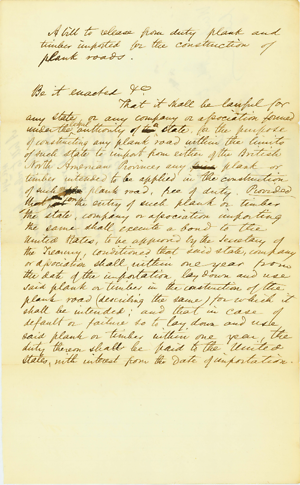 A bill to release from duty plank and
timber imported for the construction of
plank roads.
Be it enacted &c
That it shall be lawful for
any state, or any company or association formed
under the authority of a state, for the purpose
of constructing any plank road within the limits
of such state to import from either of the British
North American Provinces any plank or
timber intended to be applied in the construction
of such plank road, free of duty Provided
that the entry of such plank or timber
the state, company or association importing
the same shall execute a bond to the
United States, to be approved by the Secretary of
the Treasury, conditioned that said state, company
or association shall within one year from
the date of the importation lay down and use
said plank or timber in the construction of the
plank road (describing the same) for which it
shall be intended; and that in case of
default or failure so to lay down and use
said plank or timber within one year, the
duty thereon shall be paid to the United
States, with interest from the date of importation.